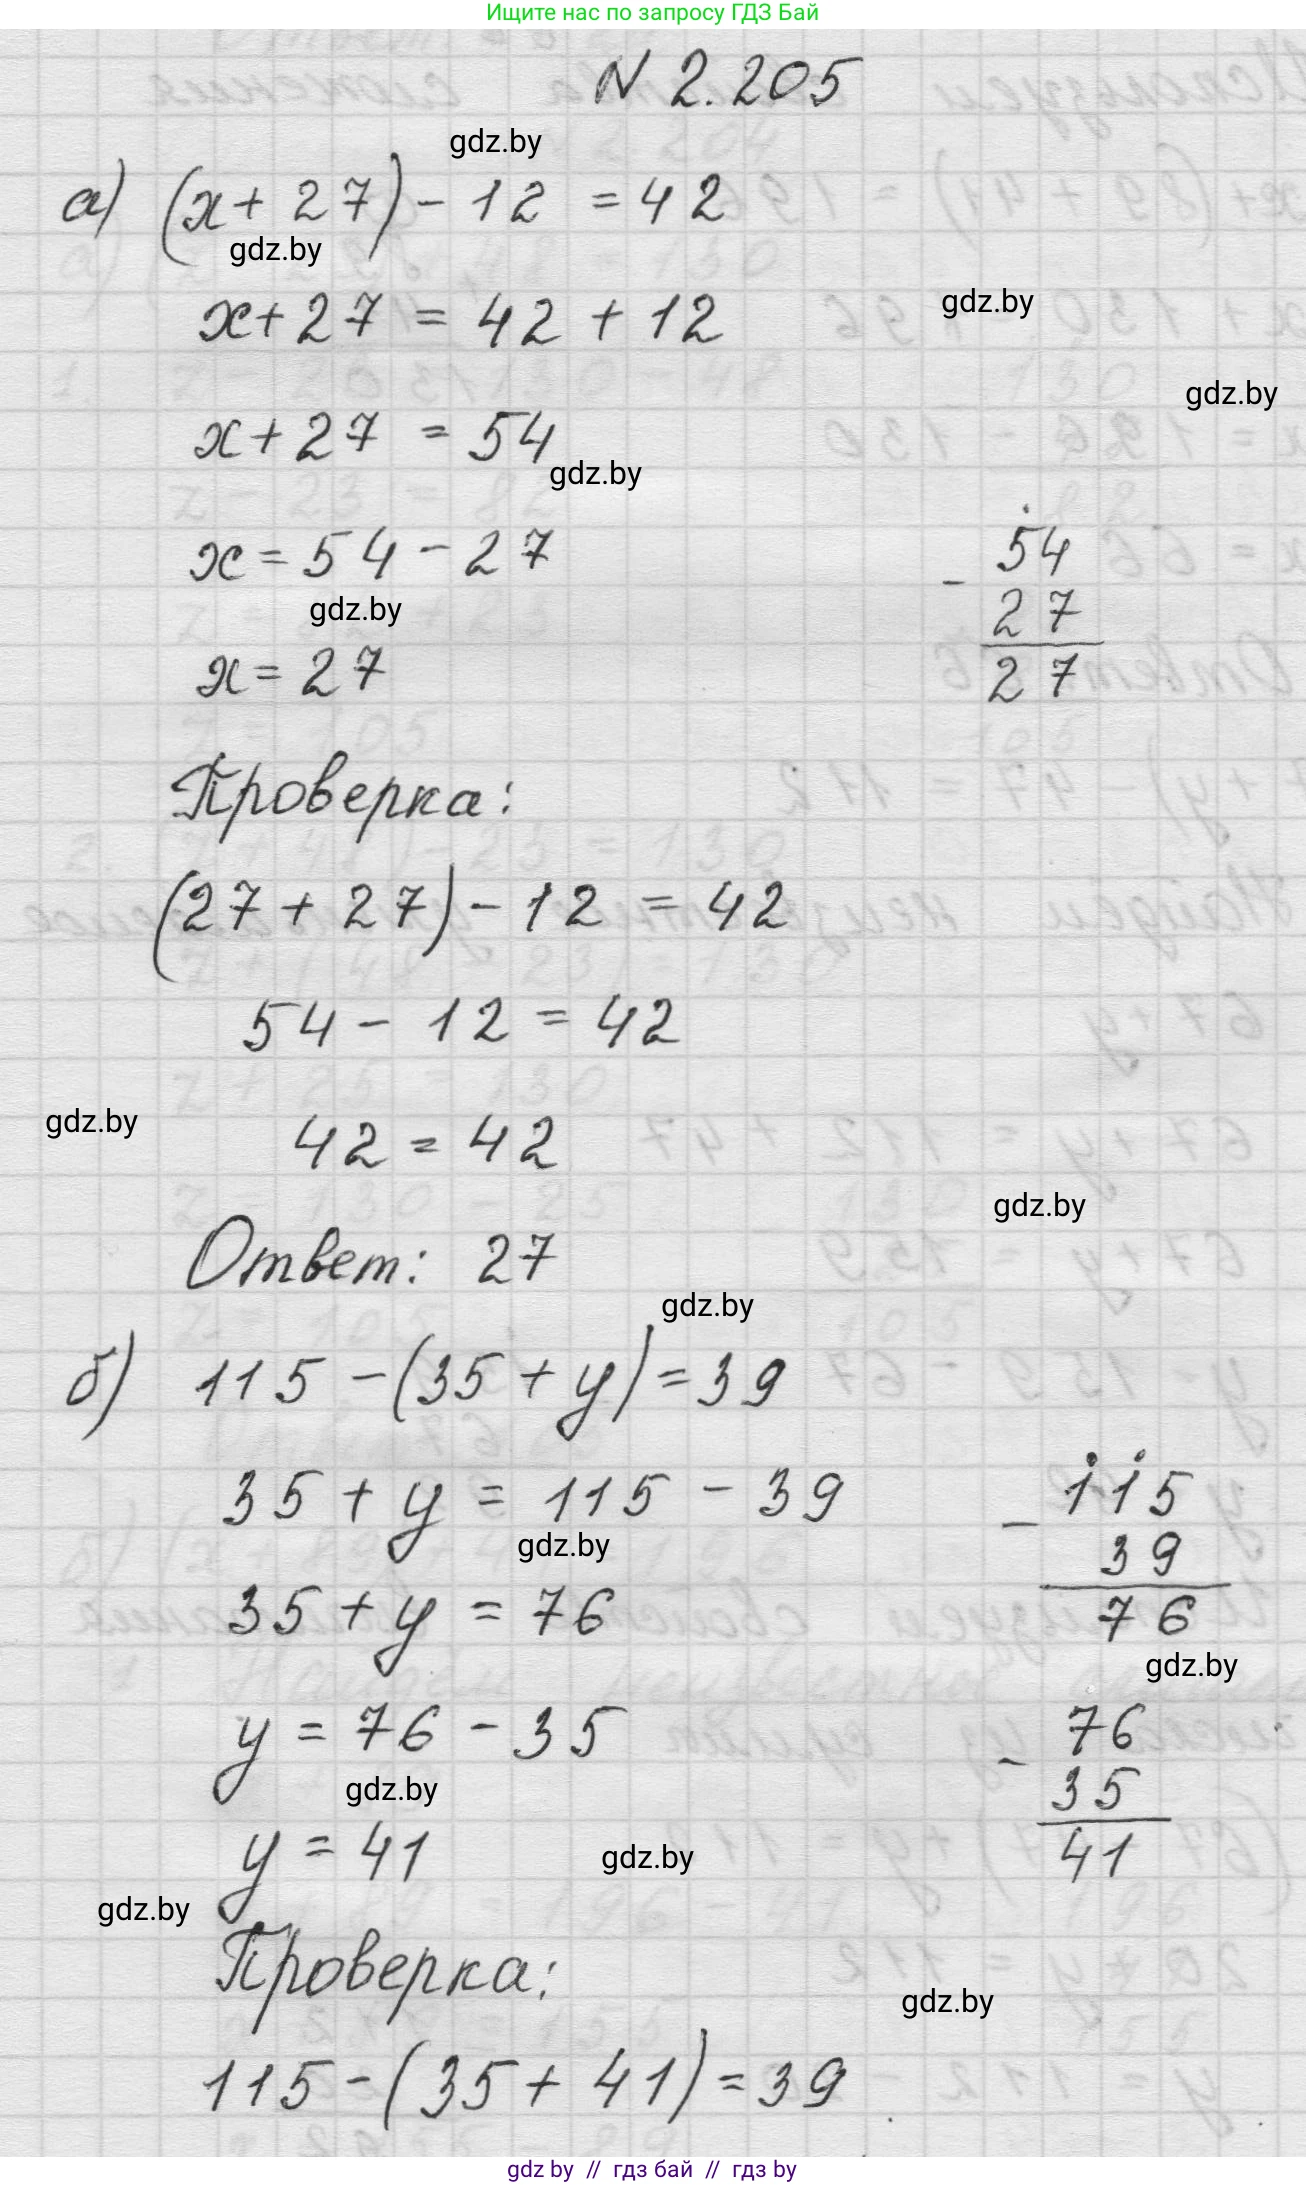 Ищите нас по запросу ГДЗ Бай
N 2.205
gdz.by
а) (x + 27) - 12 = 42
gdz.by
x + 27 = 42 + 12
gdz.by
gdz.by
x + 27 = 54
gdz.by
x = 54 - 27
54
- 27
27
gdz.by
x = 27
Проверка:
(27 + 27) - 12 = 42
54 - 12 = 42
gdz.by
42 = 42
gdz.by
Ответ: 27
gdz.by
б) 115 - (35 + y) = 39
35 + y = 115 - 39
115
- 39
76
gdz.by
35 + y = 76
gdz.by
y = 76 - 35
76
- 35
41
gdz.by
y = 41
gdz.by
gdz.by
Проверка:
gdz.by
115 - (35 + 41) = 39
gdz by // гдз бай // гдз by